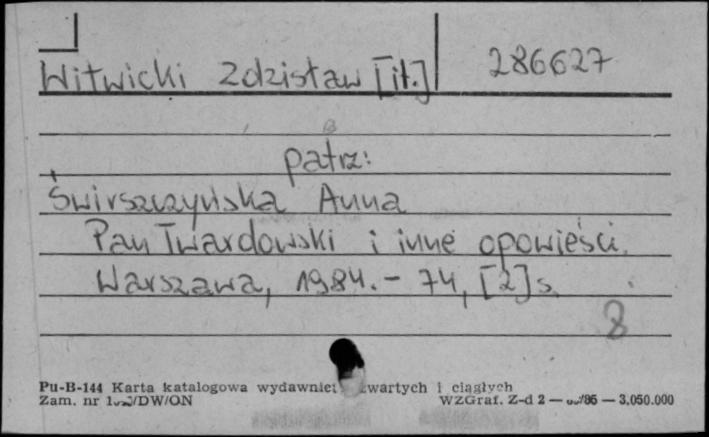 Witwicki Zdzisław [il.] 286627
patrz:
Świrszczyńska Anna
Pan Twardowski i inne opowieści.
Warszawa, 1984. - 74, [2] s.
8
Pu-B-144 Karta katalogowa wydawnict wartych i ciągłych
Zam. nr /DW/ON WZGraf. Z-d 2 — /86 — 3.050.000